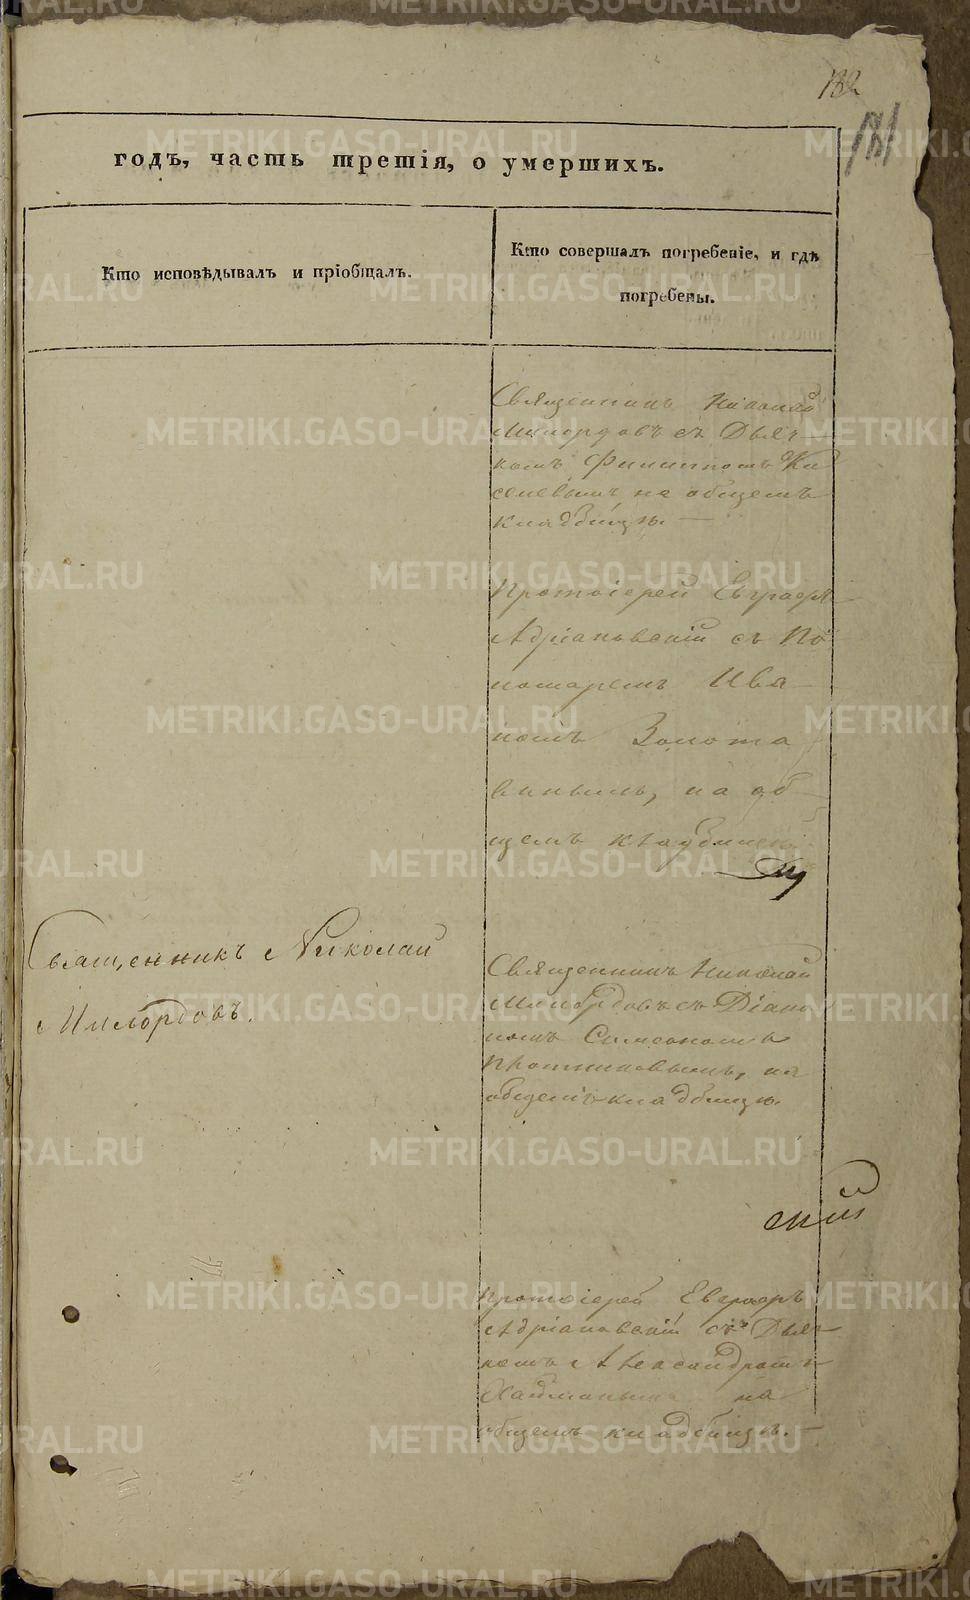 182
181
годъ, часть третія, о умершихъ.
Кто исповѣдывалъ и пріобщалъ.
Кто совершалъ погребеніе, и гдѣ
погребены.
Священникъ Николай
Милордовъ съ Дьяч
комъ Филиппомъ Ки
селевымъ на общемъ
кладбищѣ. —
Протоіерей Евграфъ
Адріановскій съ По
номаремъ Ива
номъ Золота
винымъ, на об
щемъ кладбищѣ
Священникъ Николай
Милордовъ.
Священникъ Николай
Милордовъ съ Діако
номъ Симеономъ
Плотниковымъ, на
общемъ кладбищѣ.
скій
Протоіерей Евграфъ
Адріановскій съ Дьяч
комъ Александромъ
на
общемъ кладбищѣ. —
METRIKI.GASO-URAL.RU